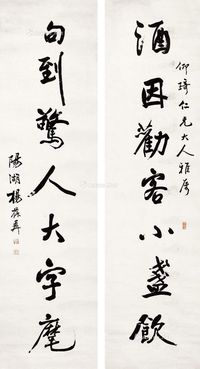 仰琦仁兄大人雅屬
酒因勸客小盞飲
句到驚人大字麾
陽湖楊葆彝